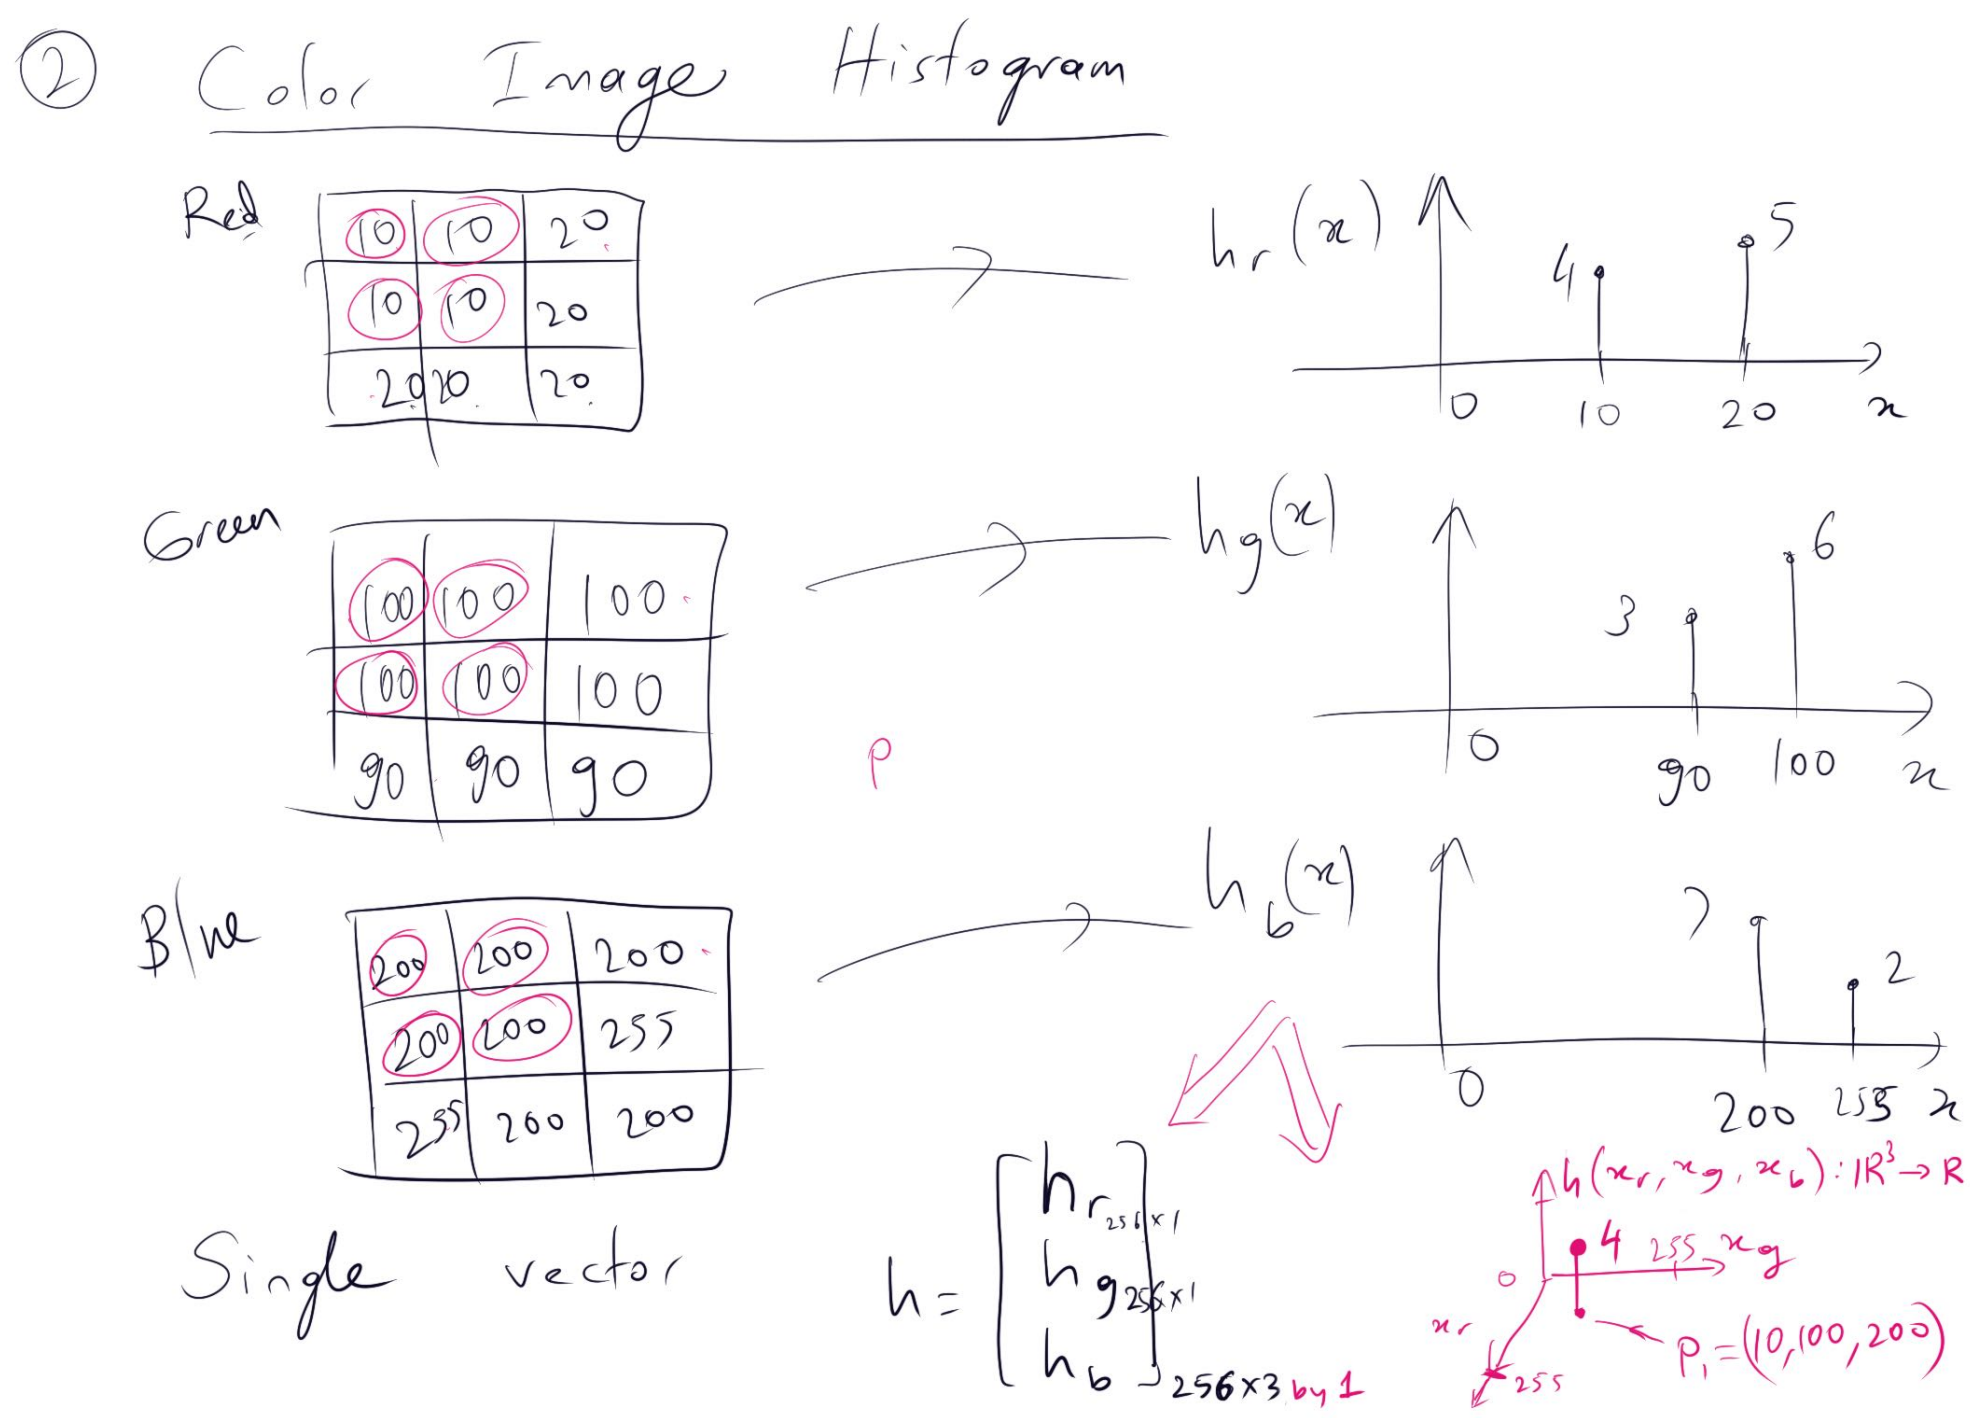 ② Color Image Histogram
Red
10 10 20
10 10 20
20 20 20
hr(x)
4
5
0 10 20 x
Green
100 100 100
100 100 100
90 90 90
hg(x)
3
6
0 90 100 x
P
Blue
200 200 200
200 200 255
255 200 200
hb(x)
7
2
0 200 255 x
Single vector
h = [
hr 256×1
hg 256×1
hb
] 256×3 by 1
h(xr, xg, xb): IR³ → R
4 255 xg
0
xr
255
P₁ = (10, 100, 200)